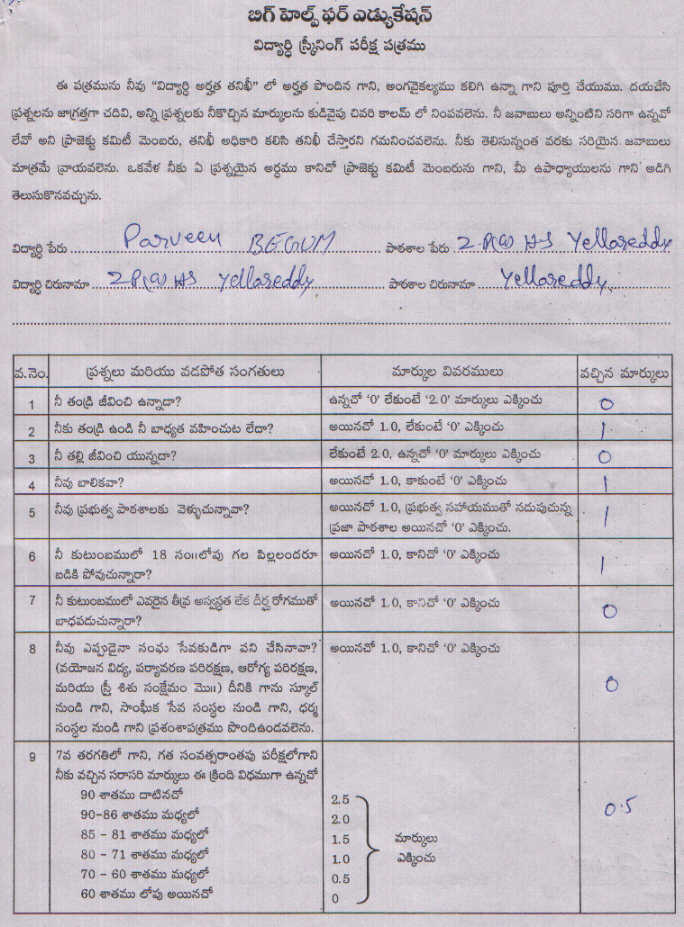 బిగ్ హెల్ప్ ఫర్ ఎడ్యుకేషన్
విద్యార్థి స్క్రీనింగ్ పరీక్ష పత్రము
ఈ పత్రమును నీవు "విద్యార్థి అర్హత తనిఖీ" లో అర్హత పొందిన గాని, అంగవైకల్యము కలిగి ఉన్నా గాని పూర్తి చేయుము. దయచేసి
ప్రశ్నలను జాగ్రత్తగా చదివి, అన్ని ప్రశ్నలకు నీకొచ్చిన మార్కులను కుడివైపు చివరి కాలమ్ లో నింపవలెను. నీ జవాబులు అన్నింటిని సరిగా ఉన్నవో
లేవో అని ప్రాజెక్టు కమిటీ మెంబరు, తనిఖీ అధికారి కలిసి తనిఖీ చేస్తారని గమనించవలెను. నీకు తెలిసున్నంత వరకు సరియైన జవాబులు
మాత్రమే వ్రాయవలెను. ఒకవేళ నీకు ఏ ప్రశ్నయైన అర్ధము కానిచో ప్రాజెక్టు కమిటీ మెంబరును గాని, మీ ఉపాధ్యాయులను గాని అడిగి
తెలుసుకొనవచ్చును.
విద్యార్థి పేరు Parveen BEGUM పాఠశాల పేరు Z.P(G) HS Yellareddy
విద్యార్థి చిరునామా Z.P(G) HS Yellareddy పాఠశాల చిరునామా Yellareddy
వ.నెం. ప్రశ్నలు మరియు వడపోత సంగతులు మార్కుల వివరములు వచ్చిన మార్కులు
1 నీ తండ్రి జీవించి ఉన్నాడా? ఉన్నచో '0' లేకుంటే '2.0' మార్కులు ఎక్కించు 0
2 నీకు తండ్రి ఉండి నీ బాధ్యత వహించుట లేదా? అయినచో 1.0, లేకుంటే '0' ఎక్కించు 1
3 నీ తల్లి జీవించి యున్నదా? లేకుంటే 2.0, ఉన్నచో '0' మార్కులు ఎక్కించు 0
4 నీవు బాలికవా? అయినచో 1.0, కాకుంటే '0' ఎక్కించు 1
5 నీవు ప్రభుత్వ పాఠశాలకు వెళ్ళుచున్నావా? అయినచో 1.0, ప్రభుత్వ సహాయముతో నడుపుచున్న 1
ప్రజా పాఠశాల అయినచో '0' ఎక్కించు.
6 నీ కుటుంబములో 18 సం॥లోపు గల పిల్లలందరూ అయినచో 1.0, కానిచో '0' ఎక్కించు 1
బడికి పోవుచున్నారా?
7 నీ కుటుంబములో ఎవరైన తీవ్ర అస్వస్థత లేక దీర్ఘ రోగముతో అయినచో 1.0, కానిచో '0' ఎక్కించు 0
బాధపడుచున్నారా?
8 నీవు ఎప్పుడైనా సంఘ సేవకుడిగా పని చేసినావా? అయినచో 1.0, కానిచో '0' ఎక్కించు 0
(వయోజన విద్య, పర్యావరణ పరిరక్షణ, ఆరోగ్య పరిరక్షణ,
మరియు స్త్రీ శిశు సంక్షేమం మొ॥) దీనికి గాను స్కూల్
నుండి గాని, సాంఘీక సేవ సంస్థల నుండి గాని, ధర్మ
సంస్థల నుండి గాని ప్రశంశాపత్రము పొందిఉండవలెను.
9 7వ తరగతిలో గాని, గత సంవత్సరాంతపు పరీక్షలోగాని
నీకు వచ్చిన సరాసరి మార్కులు ఈ క్రింది విధముగా ఉన్నచో
90 శాతము దాటినచో 2.5 0.5
90-86 శాతము మధ్యలో 2.0
85 - 81 శాతము మధ్యలో 1.5 మార్కులు
80 - 71 శాతము మధ్యలో 1.0 ఎక్కించు
70 - 60 శాతము మధ్యలో 0.5
60 శాతము లోపు అయినచో 0